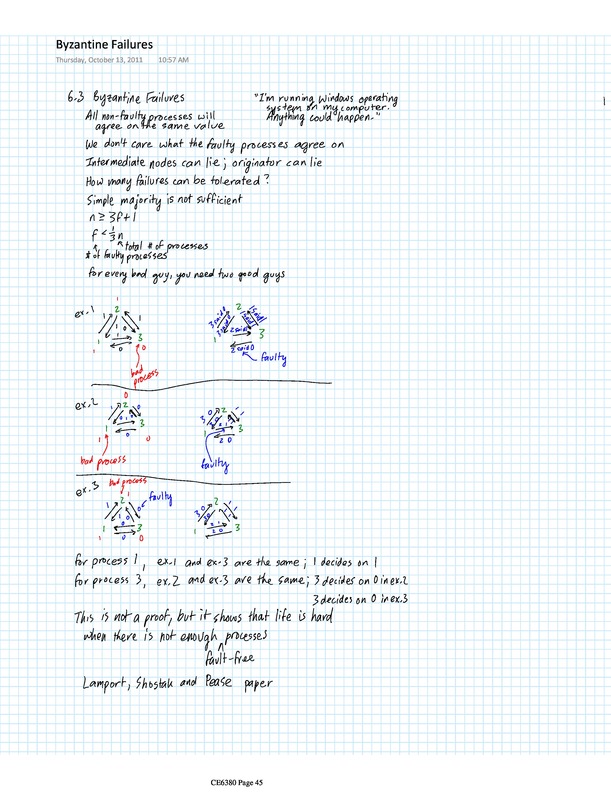 Byzantine Failures
Thursday, October 13, 2011 10:57 AM
6.3 Byzantine Failures
"I'm running Windows operating
system on my computer.
Anything could happen."
1
All non-faulty processes will
agree on the same value
We don't care what the faulty processes agree on
Intermediate nodes can lie; originator can lie
How many failures can be tolerated?
Simple majority is not sufficient
n ≥ 3f+1
f < 1/3 n
total # of processes
# of faulty processes
for every bad guy, you need two good guys
ex. 1
bad
process
faulty
ex. 2
bad process
faulty
ex. 3
bad process
faulty
for process 1, ex.1 and ex.3 are the same; 1 decides on 1
for process 3, ex.2 and ex.3 are the same; 3 decides on 0 in ex.2
3 decides on 0 in ex.3
This is not a proof, but it shows that life is hard
when there is not enough processes
fault-free
Lamport, Shostak and Pease paper
CE6380 Page 45